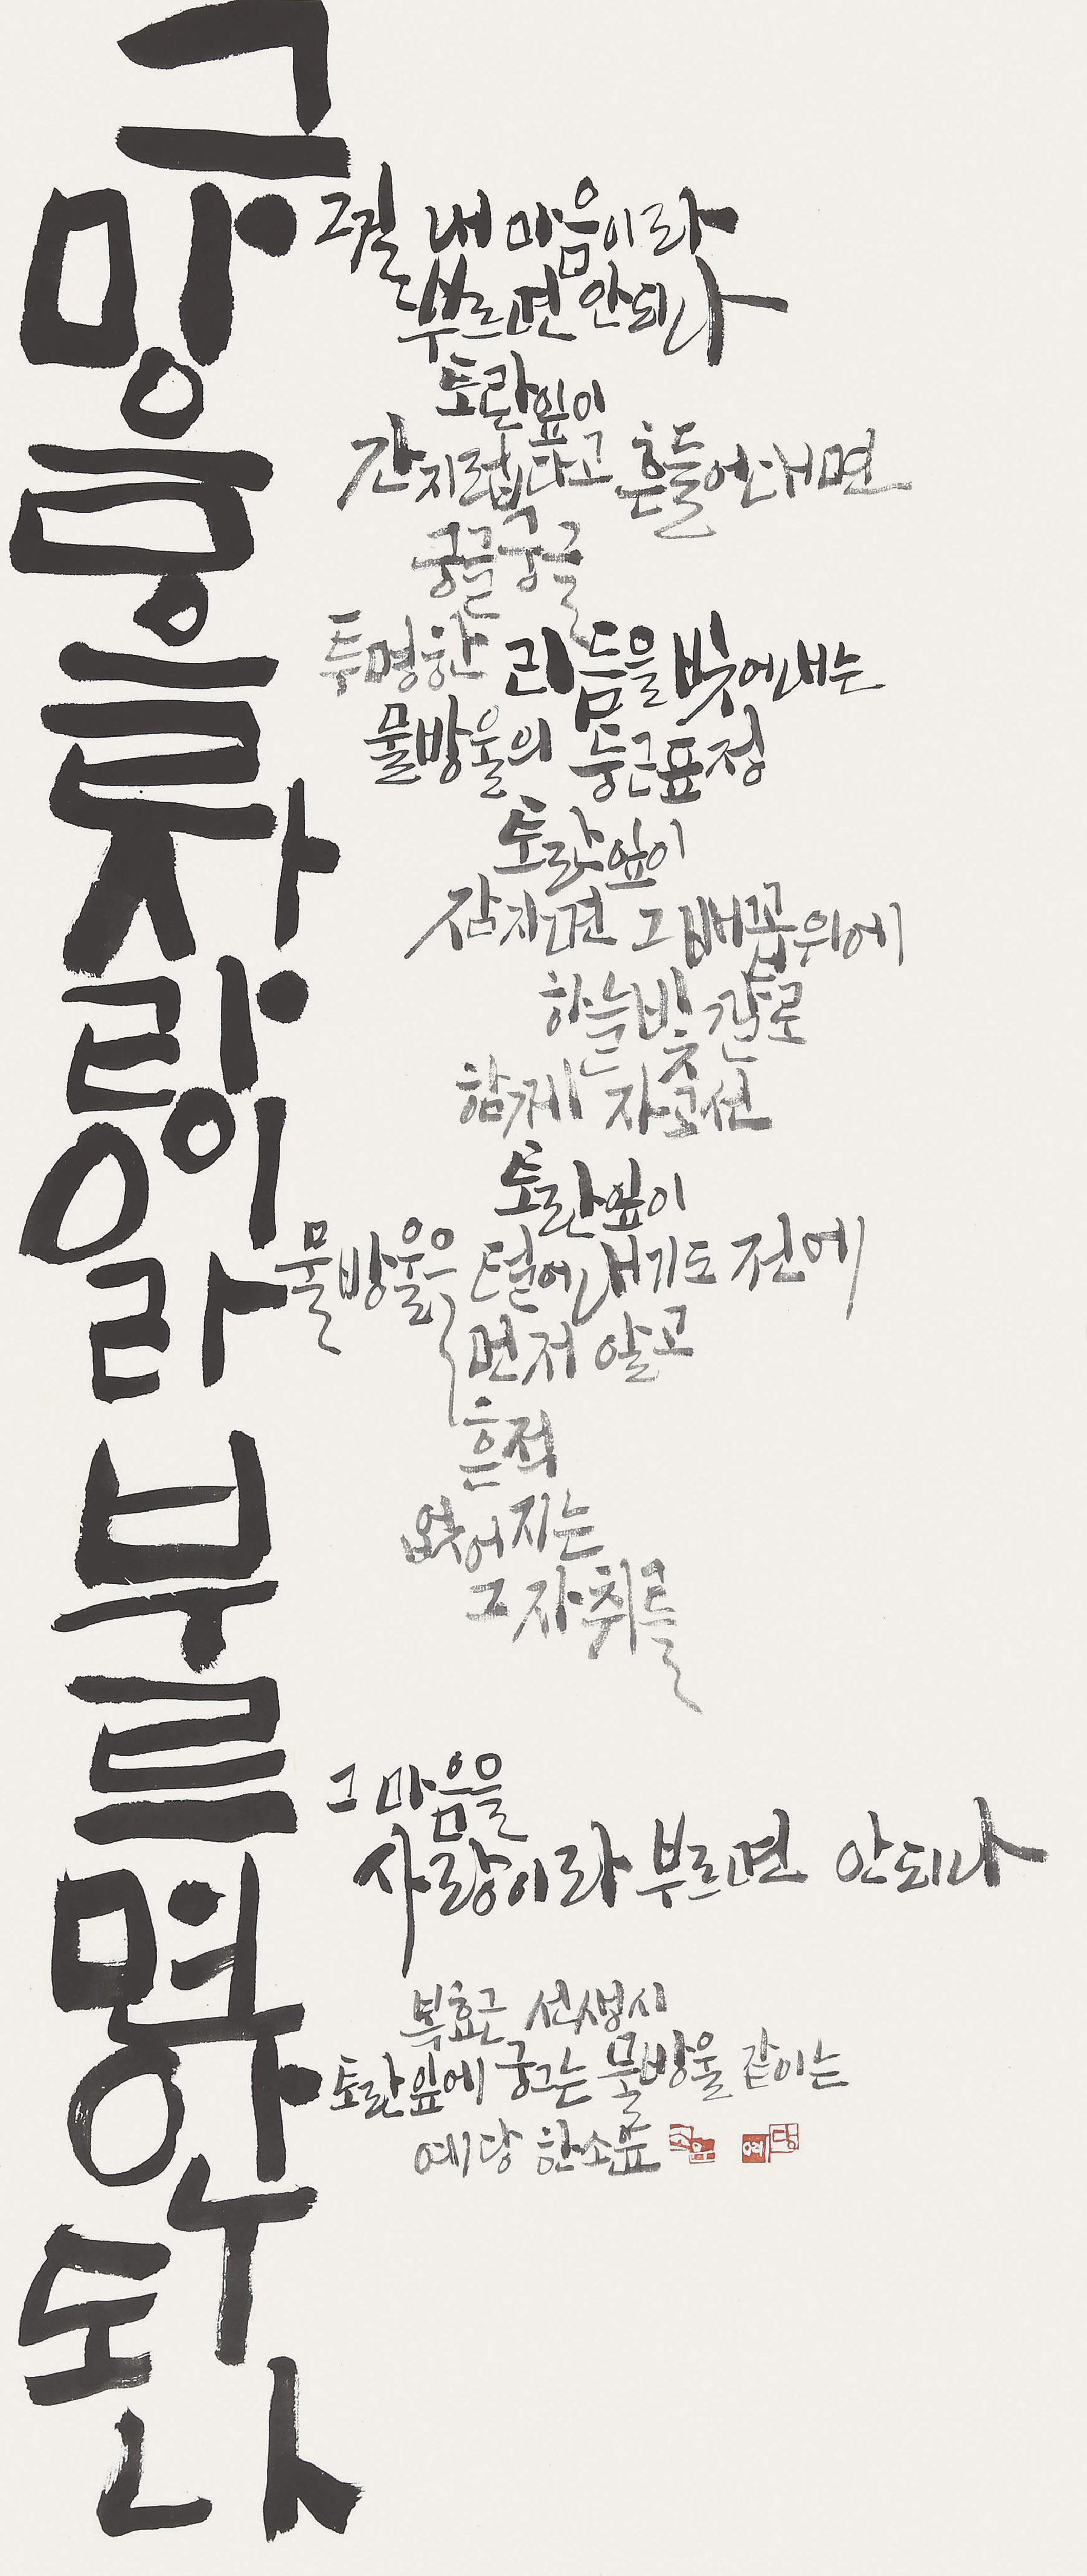 그 마음을 사랑이라 부르면 안되나
그걸 내 마음이라
부르면 안되나
토란잎이
간지럽다고 흔들어대면
궁글궁글
투명한 리듬을 빚어내는
물방울의 둥근표정
토란잎이
잠자면 그 배꼽위에
하늘빛 깔로
함께 자고선
토란잎이
물방울을 털어내기도 전에
먼저 알고
흔적
없어지는
그 자취를
그 마음을
사랑이라 부르면 안되나
복효근 선생시
토란잎에 궁그는 물방울 같이는
예당 한소윤
예당